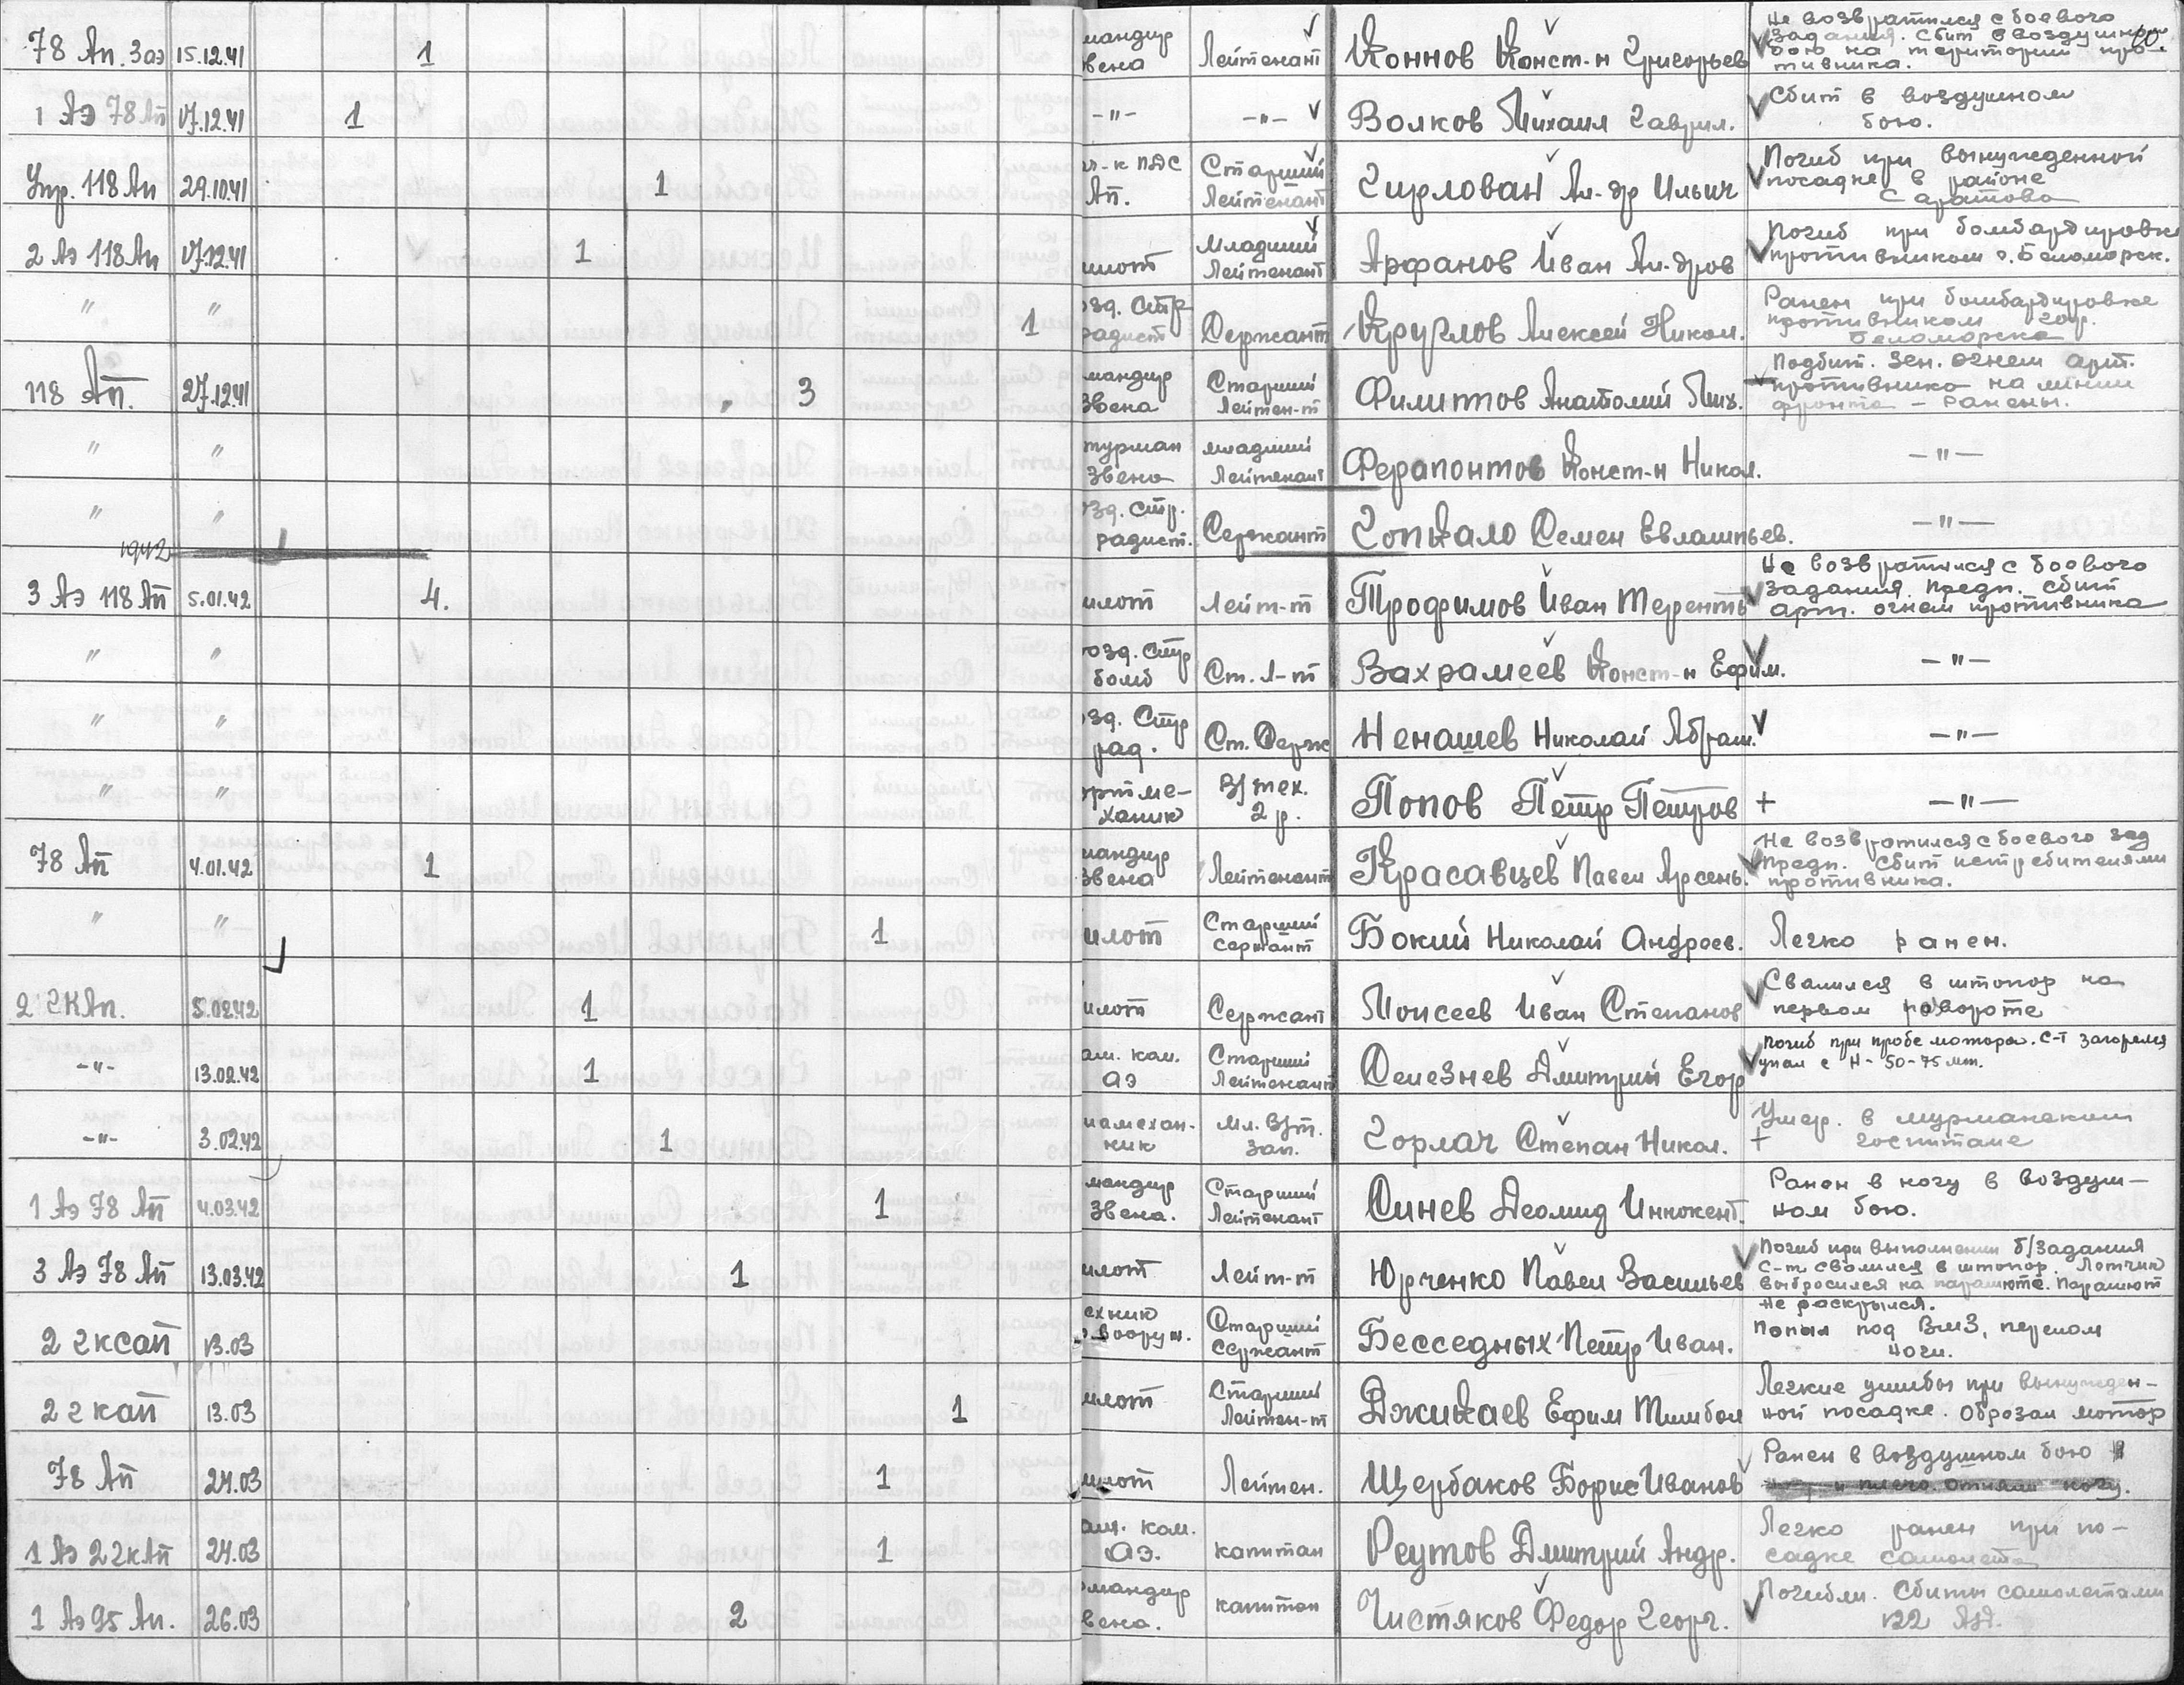 78 Ап. 3аэ 15.12.41 1 мандир вена Лейтенант Коннов Конст-н Григорьев Не возвратился с боевого задания. Сбит в воздушном бою на територии противника.
1 Аэ 78 Ап 17.12.41 1 -"- -"- Волков Михаил Гаврил. Сбит в воздушном бою.
Упр. 118 Ап 29.10.41 1 ч-к ПДС Ап. Старший Лейтенант Гирлован Ал-др Ильич Погиб при вынужденной посадке в районе Саратова
2 Аэ 118 Ап 17.12.41 1 илот Младший Лейтенант Арфанов Иван Ал-дров Погиб при бомбардировке противником г. Беломорск.
" " 1 озд. Стр радист Сержант Круглов Алексей Никол. Ранен при бомбардировке противником гор. Беломорска
118 Ап. 27.12.41 3 мандир Звена Старший Лейтен-т Филиппов Анатолий Мих. Подбит. Зен. огнем арт. противника на линии фронта - ранены.
" " турман Звена младший Лейтенант Ферапонтов Конст-н Никол. -"-
" " озд. Стр. радист. Сержант Гопкало Семен Евлампьев. -"-
1942
3 Аэ 118 Ап 5.01.42 4. илот Лейт-т Трофимов Иван Теренть Не возвратился с боевого задания. Предп. сбит арт. огнем противника
" " озд. Стр бомб Ст. Л-т Вахрамеев Конст-н Ефим. -"-
" " озд. Стр рад. Ст. Серж Ненашев Николай Абрам. -"-
" " ортме-ханик В/тех. 2 р. Попов Петр Петров + -"-
78 Ап 4.01.42 1 мандир Звена Лейтенант Красавцев Павел Арсень. Не возвратился с боевого зад Предп. Сбит истребителями противника.
" " 1 илот Старший сержант Бокий Николай Андреев. Легко ранен.
2 ГКАп. 5.02.42 1 илот Сержант Моисеев Иван Степанов Свалился в штопор на первом повороте
-"- 13.02.42 1 ам. ком. аэ Старший Лейтенант Селезнев Дмитрий Егор Погиб при пробе мотора. С-т загорелся упал с Н-50-75 мт.
-"- 3.02.42 1 иамехан-ник Мл. В/т. зап. Горлач Степан Никол. + Умер. в мурманском госпитале
1 Аэ 78 Ап 4.03.42 1 мандир Звена. Старший Лейтенант Синев Леомид Иннокент. Ранен в ногу в воздуш-ном бою.
3 Аэ 78 Ап 13.03.42 1 илот Лейт-т Юрченко Павел Васильев Погиб при выполнении б/задания С-т свалился в штопор. Летчик выбросился на парашюте. Парашют не раскрылся.
2 гксап 13.03 ехник вооруж. Старший сержант Бесседных Петр Иван. Попал под ВМЗ, перелом ноги.
2 гкап 13.03 1 илот Старший Лейтен-т Джикаев Ефим Тимбол Легкие ушибы при вынужден-ной посадке. Обрезал мотор
78 Ап 24.03 1 илот Лейтен. Щербаков Борис Иванов Ранен в воздушном бою в и плечо. отняли ногу.
1 Аэ 2 гкАп 24.03 1 ам. ком. Аэ. капитан Реутов Дмитрий Андр. Легко ранен при по-садке самолета
1 Аэ 95 Ап. 26.03 2 мандир вена. капитан Чистяков Федор Георг. Погибли. Сбиты самолетами